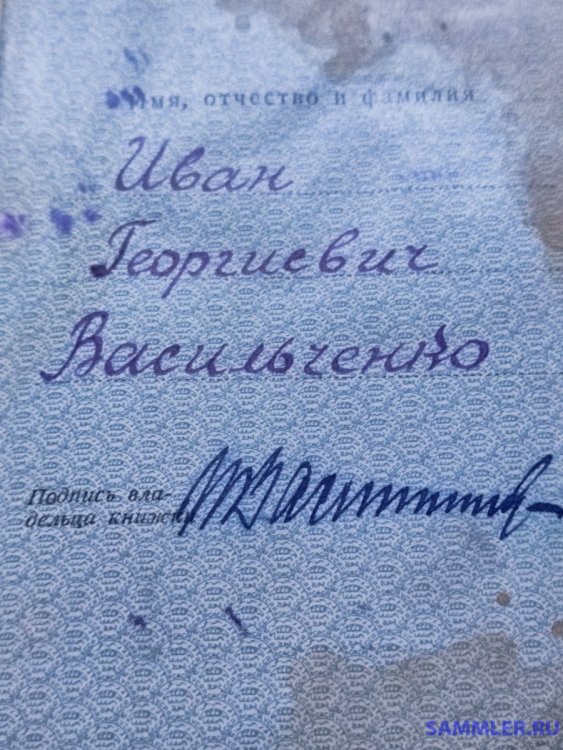 Имя, отчество и фамилия
Иван
Георгиевич
Васильченко
Подпись вла-
дельца книжки
SAMMLER.RU